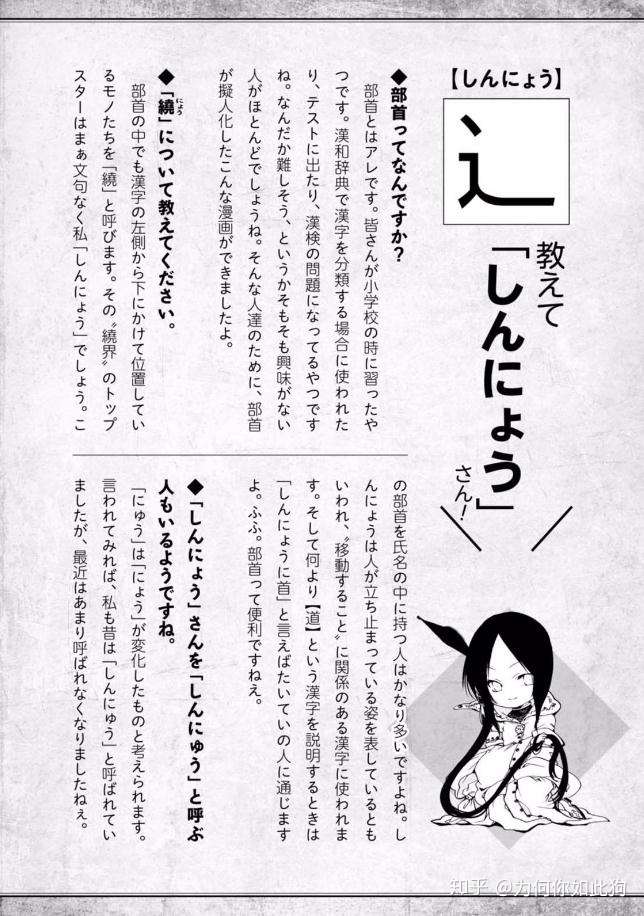 【しんにょう】
⻌
教えて
「しんにょう」
さん!
◆部首ってなんですか？
部首とはアレです。皆さんが小学校の時に習ったや
つです。漢和辞典で漢字を分類する場合に使われた
り、テストに出たり、漢検の問題になってるやつです
ね。なんだか難しそう、というかそもそも興味がない
人がほとんどでしょうね。そんな人達のために、部首
が擬人化したこんな漫画ができましたよ。
◆「繞」について教えてください。
にょう
部首の中でも漢字の左側から下にかけて位置してい
るモノたちを「繞」と呼びます。その〝繞界〟のトップ
スターはまぁ文句なく私「しんにょう」でしょう。こ
の部首を氏名の中に持つ人はかなり多いですよね。し
んにょうは人が立ち止まっている姿を表しているとも
いわれ、〝移動すること〟に関係のある漢字に使われま
す。そして何より【道】という漢字を説明するときは
「しんにょうに首」と言えばたいていの人に通じます
よ。ふふ。部首って便利ですねぇ。
◆「しんにょう」さんを「しんにゅう」と呼ぶ
人もいるようですね。
「にゅう」は「にょう」が変化したものと考えられます。
言われてみれば、私も昔は「しんにゅう」と呼ばれてい
ましたが、最近はあまり呼ばれなくなりましたねぇ。
知乎 @为何你如此狗